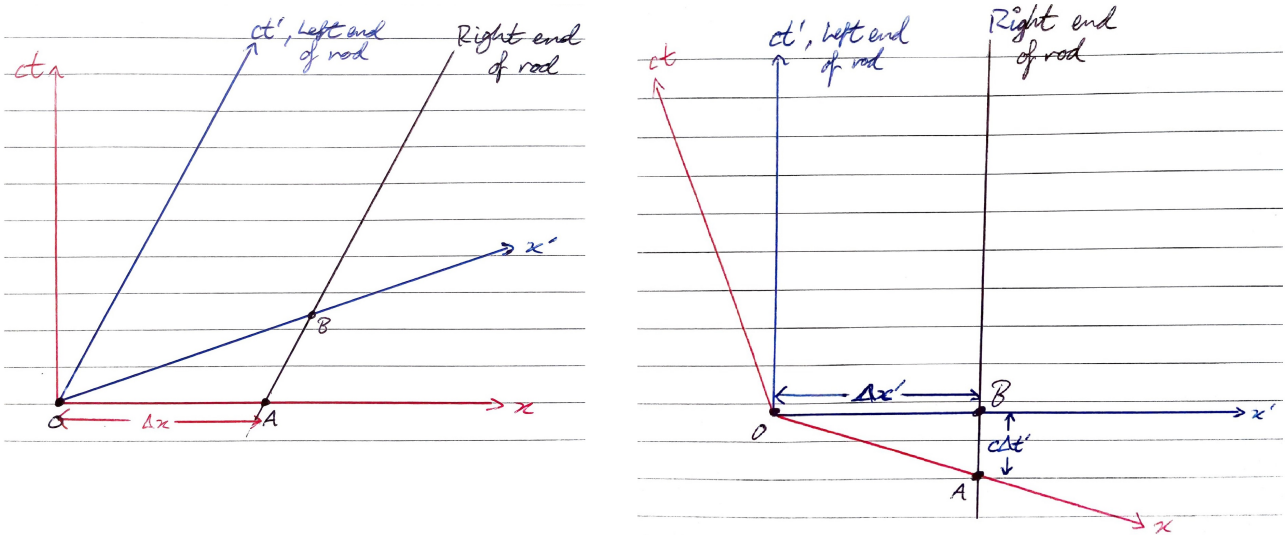 ct', Left end
of rod
Right end
of rod
ct
x'
B
O
A
x
Δx
ct', Left end
of rod
Right end
of rod
ct
Δx'
B
x'
O
cΔt'
A
x